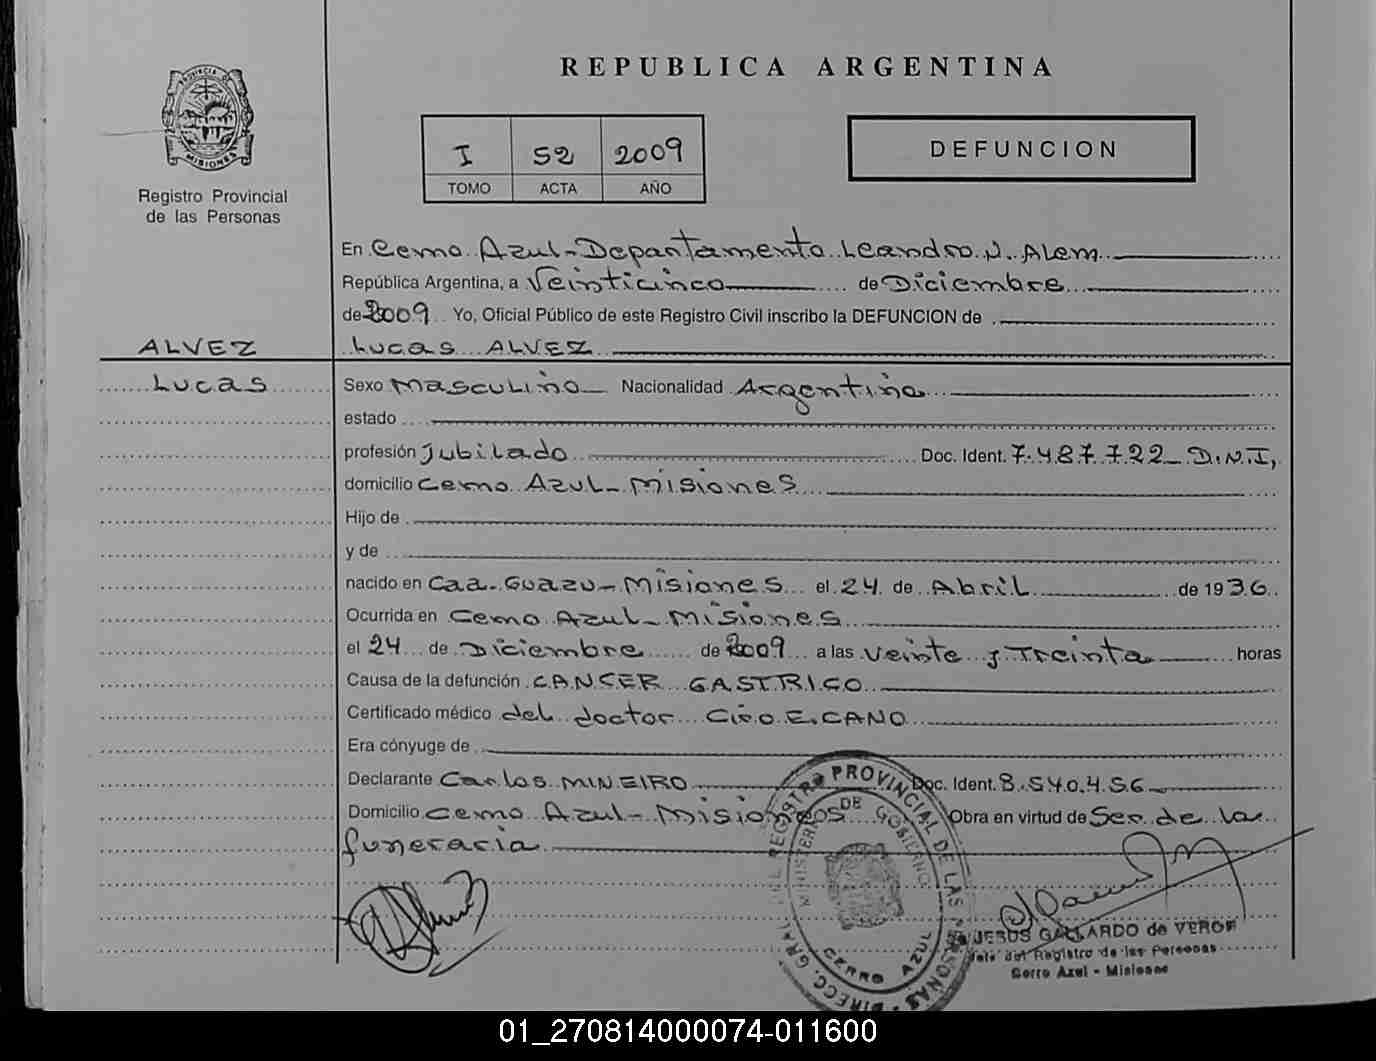 REPUBLICA ARGENTINA
PROVINCIA DE
MISIONES
Registro Provincial
de las Personas
I 52 2009
TOMO ACTA AÑO
DEFUNCION
En Cerro Azul - Departamento Leandro N. Alem
República Argentina, a Veinticinco de Diciembre
de 2009 Yo, Oficial Público de este Registro Civil inscribo la DEFUNCION de
ALVEZ Lucas ALVEZ
Lucas Sexo Masculino Nacionalidad Argentina
estado
profesión Jubilado Doc. Ident. 7.487.722 - D.N.I,
domicilio Cerro Azul - Misiones
Hijo de
y de
nacido en Caa-Guazu - Misiones el 24 de Abril de 1936
Ocurrida en Cerro Azul - Misiones
el 24 de Diciembre de 2009 a las Veinte y Treinta horas
Causa de la defunción CANCER GASTRICO
Certificado médico del doctor Ciro E. CANO
Era cónyuge de
Declarante Carlos MINEIRO Doc. Ident. 8.540.456
Domicilio Cerro Azul - Misiones Obra en virtud de Ser de la
funeraria
DIRECC. GRAL. DEL REGISTRO PROVINCIAL DE LAS PERSONAS
MINISTERIO DE GOBIERNO
CERRO AZUL
JESUS GALLARDO de VERON
Jefe del Registro de las Personas
Cerro Azul - Misiones
01_270814000074-011600